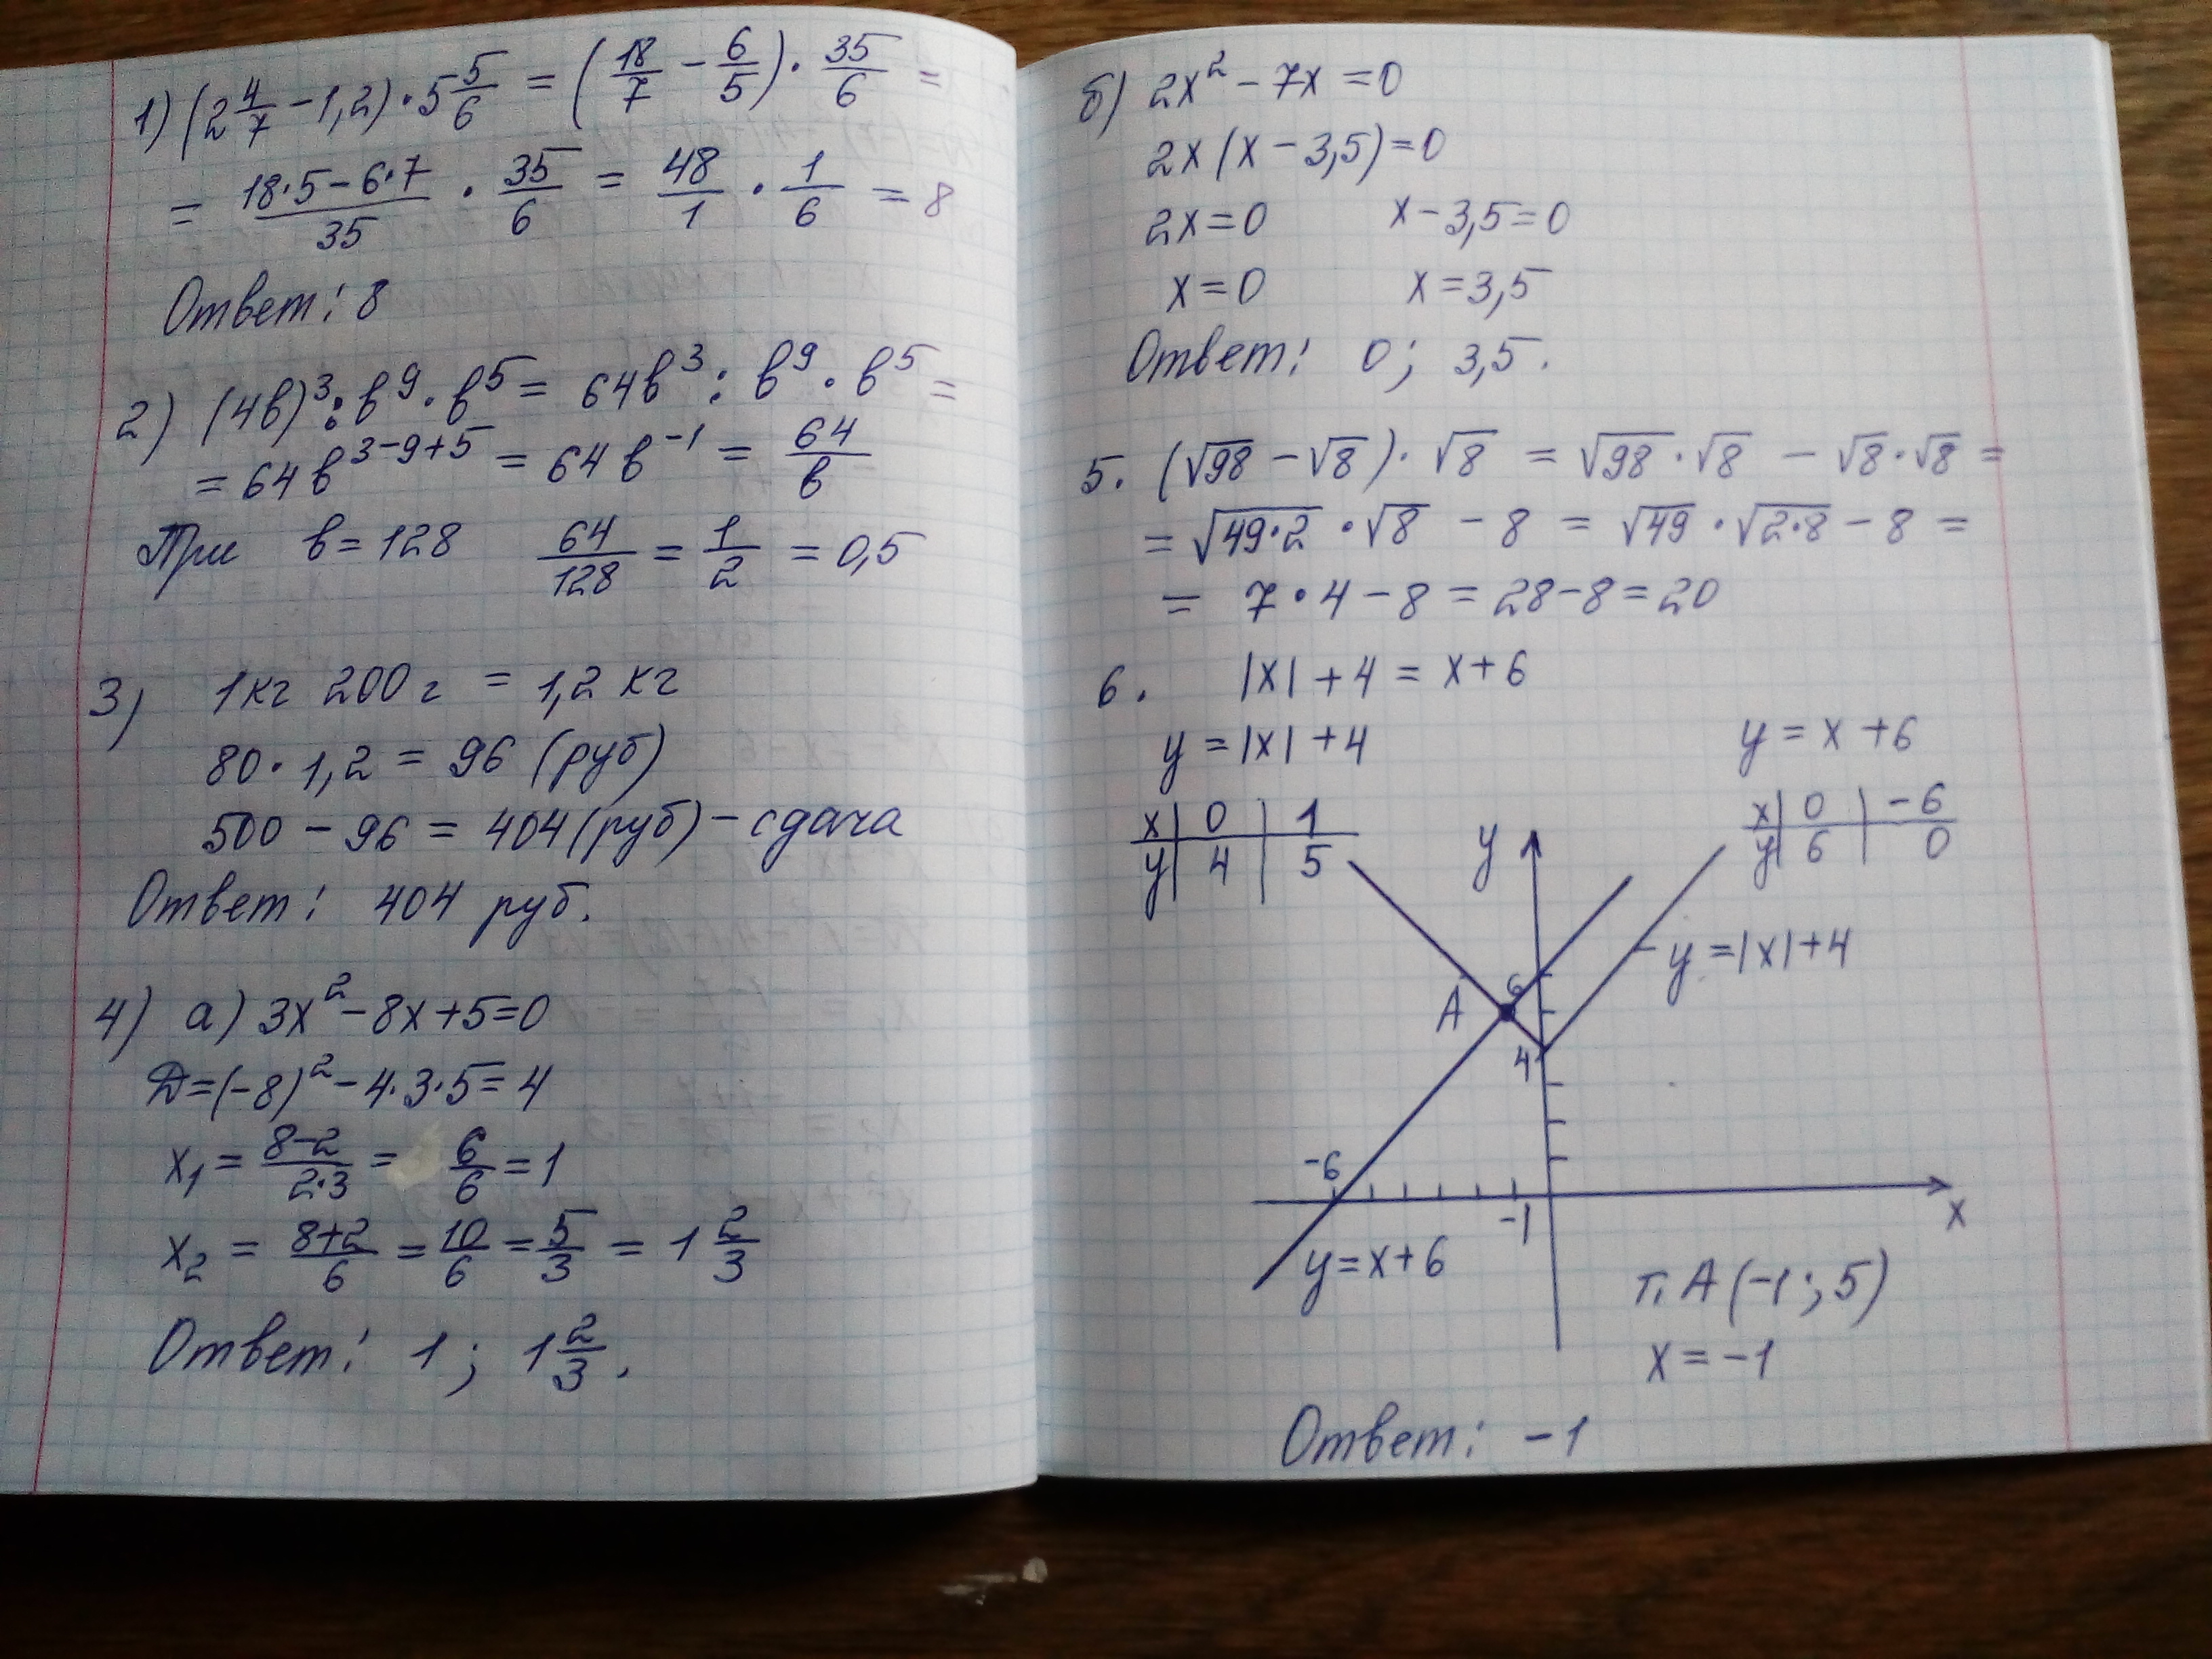 1) (2 4/7 - 1,2) · 5 5/6 = (18/7 - 6/5) · 35/6 =
= (18·5 - 6·7)/35 · 35/6 = 48/1 · 1/6 = 8
Ответ: 8
2) (4в)³ : в⁹ · в⁵ = 64в³ : в⁹ · в⁵ =
= 64в³⁻⁹⁺⁵ = 64в⁻¹ = 64/в
При в = 128 64/128 = 1/2 = 0,5
3) 1кг 200г = 1,2 кг
80 · 1,2 = 96 (руб)
500 - 96 = 404 (руб) - сдача
Ответ: 404 руб.
4) а) 3x² - 8x + 5 = 0
Д = (-8)² - 4·3·5 = 4
x₁ = (8-2)/(2·3) = 6/6 = 1
x₂ = (8+2)/6 = 10/6 = 5/3 = 1 2/3
Ответ: 1; 1 2/3.
б) 2x² - 7x = 0
2x(x - 3,5) = 0
2x = 0 x - 3,5 = 0
x = 0 x = 3,5
Ответ: 0; 3,5.
5. (√98 - √8) · √8 = √98 · √8 - √8 · √8 =
= √49·2 · √8 - 8 = √49 · √2·8 - 8 =
= 7 · 4 - 8 = 28 - 8 = 20
6. |x| + 4 = x + 6
y = |x| + 4 y = x + 6
x | 0 | 1 x | 0 | -6
y | 4 | 5 y | 6 | 0
y
y = |x| + 4
6
A
4
-6
-1
x
y = x + 6
т. A (-1; 5)
x = -1
Ответ: -1